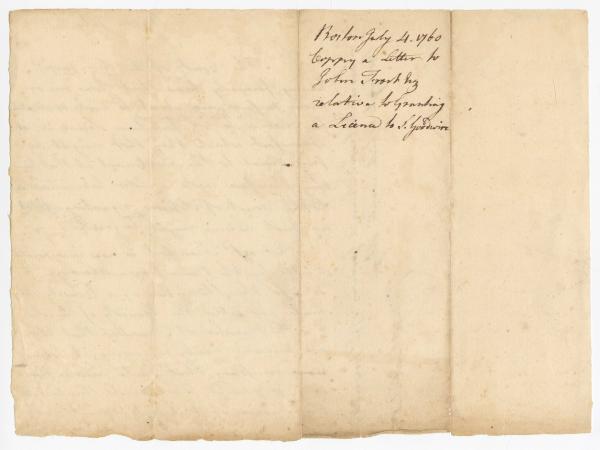 Boston July 4. 1760
Coppy a Letter to
John Frost Esq
relative to Granting
a Licence to S. Goodwin